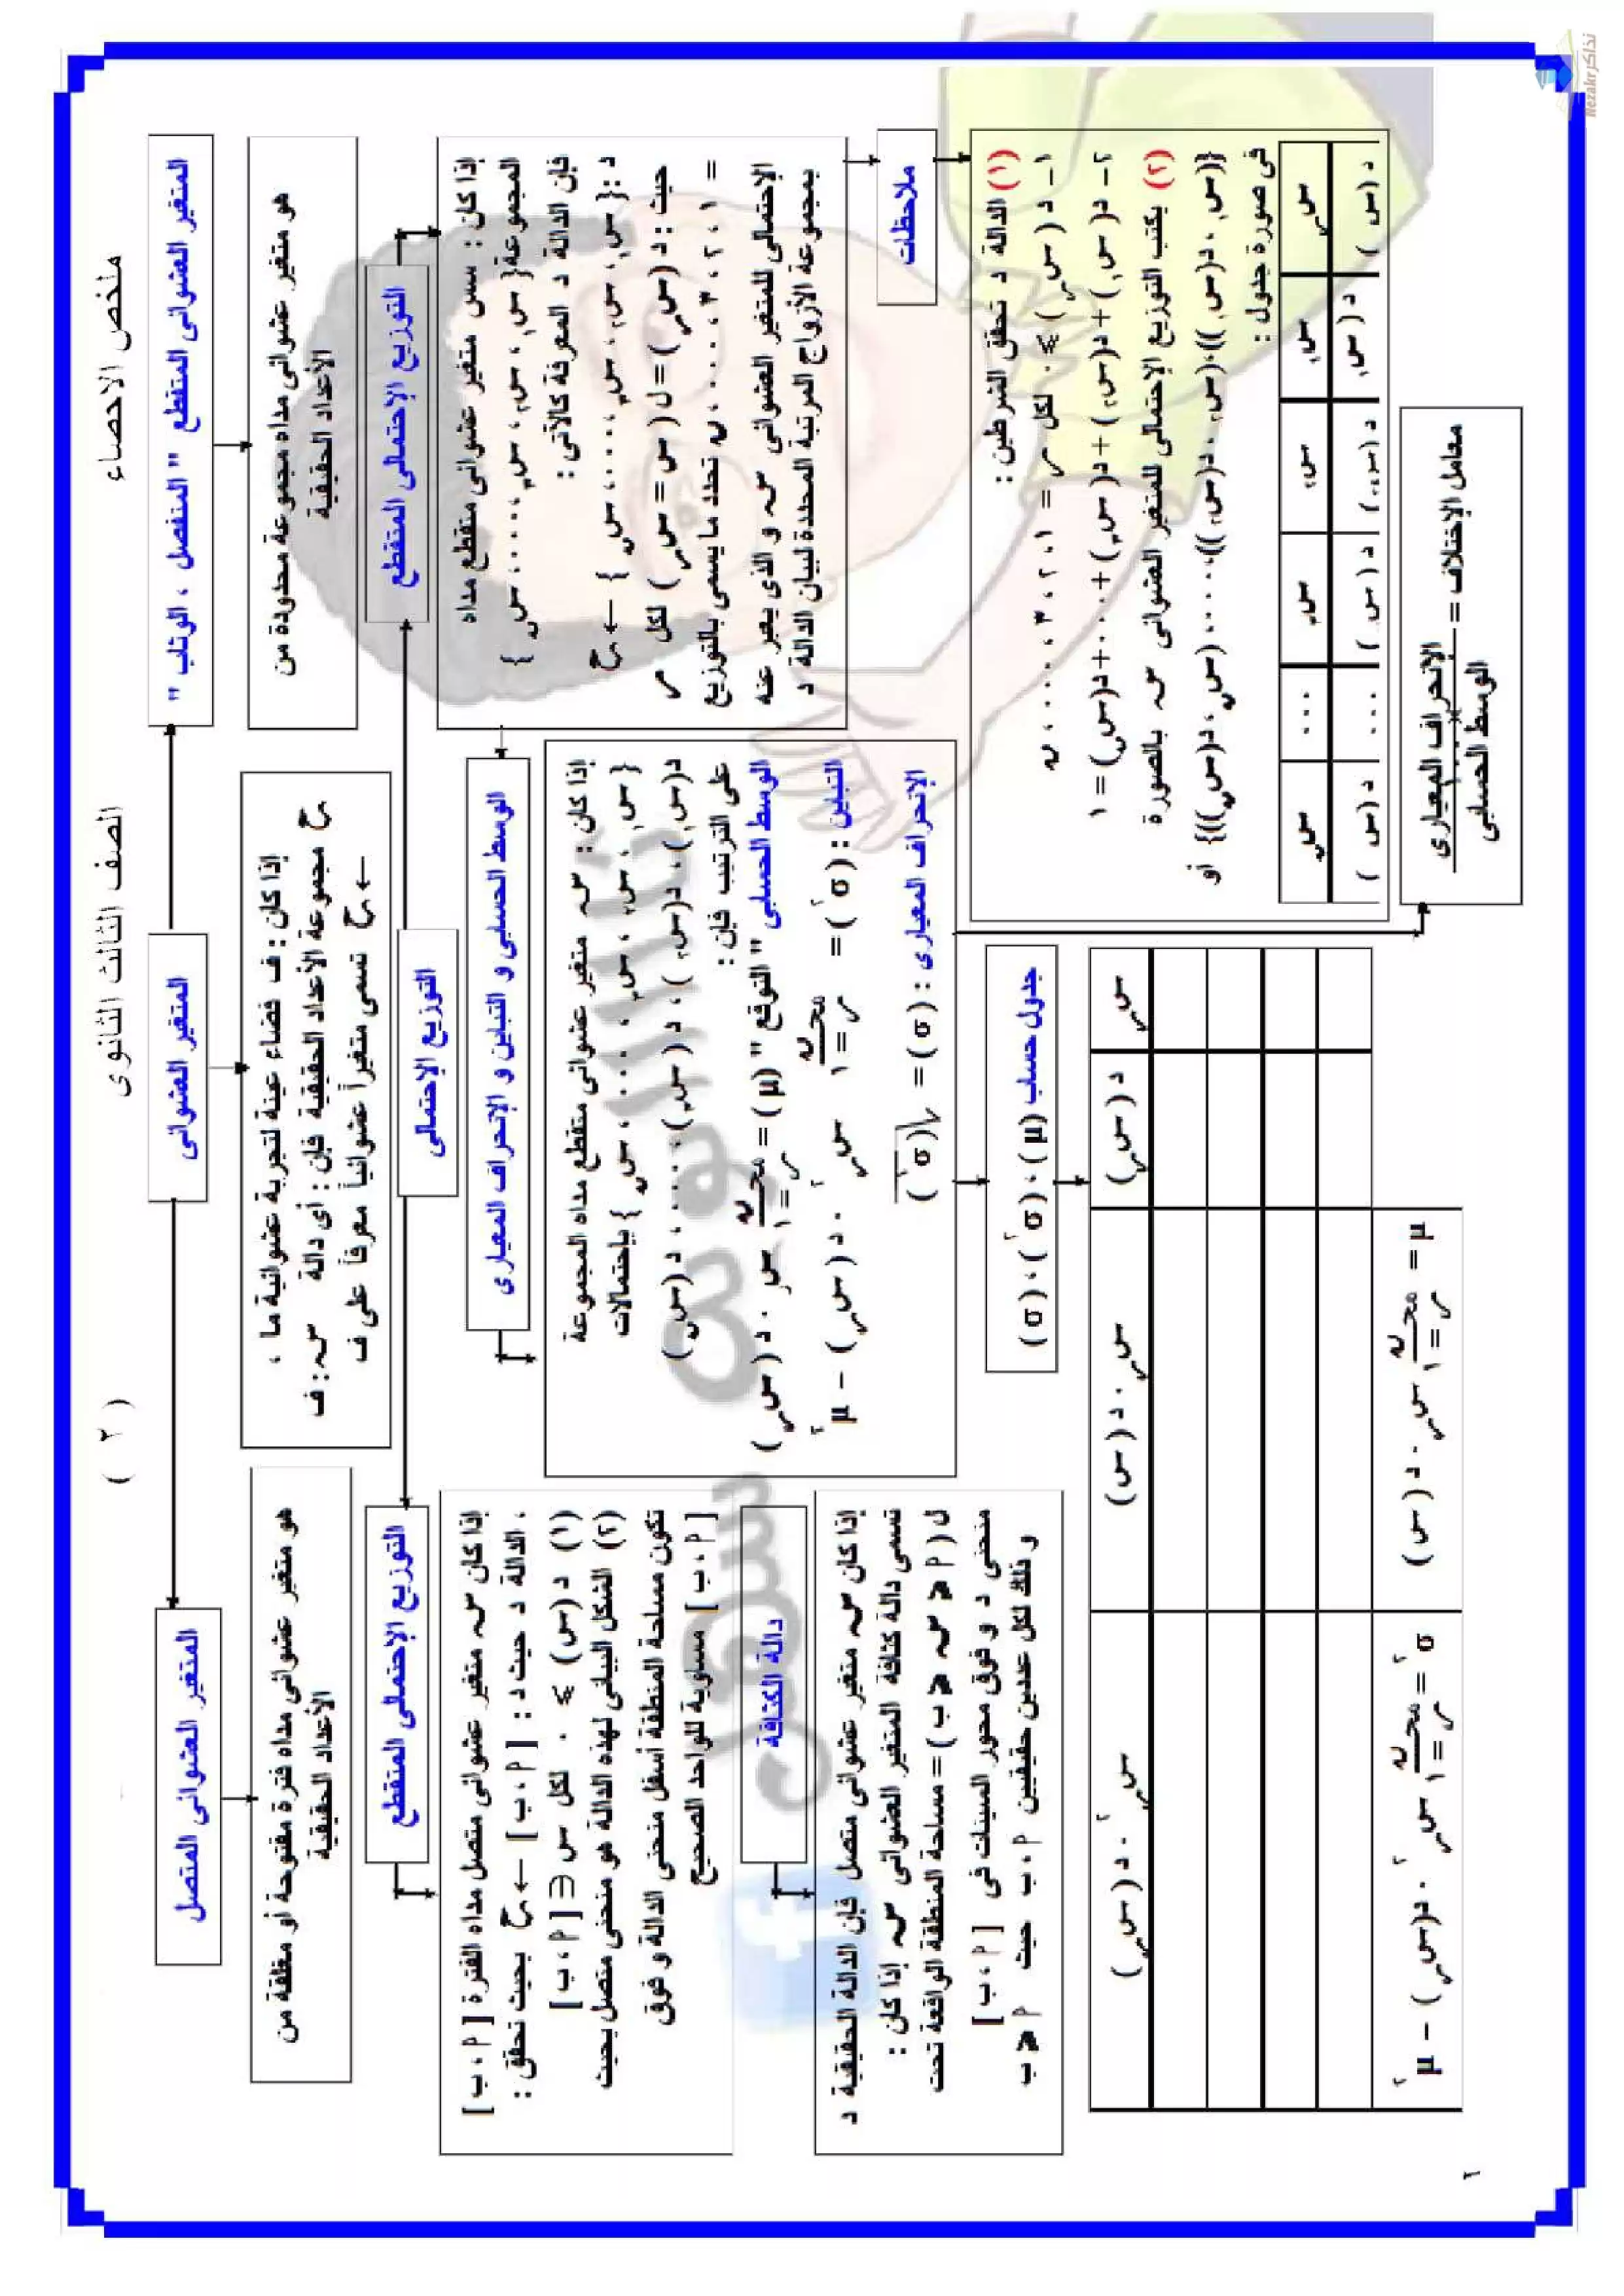 ملخص الاحصاء
الصف الثالث الثانوى
( ٢ )
المتغير العشوائى المتقطع " المنفصل ، الوثاب "
المتغير العشوائى
المتغير العشوائى المتصل
هو متغير عشوائى مداه مجموعة محدودة من
الأعداد الحقيقية
إذا كان : ف فضاء عينة لتجربة عشوائية ما ،
ح مجموعة الأعداد الحقيقية فإن : أى دالة سہ : ف
← ح تسمى متغيراً عشوائياً معرفاً على ف
هو متغير عشوائى مداه فترة مفتوحة أو مغلقة من
الأعداد الحقيقية
التوزيع الإحتمالى المتقطع
التوزيع الإحتمالى
التوزيع الإحتمالى المتقطع
إذا كان : سس متغير عشوائى متقطع مداه
المجموعة { س١ ، س٢ ، س٣ ، ..... ، سن }
فإن الدالة د المعرفة كالآتى :
د : { س١ ، س٢ ، س٣ ، ..... ، سن } ← ح
حيث : د ( سر ) = ل ( سہ = سر ) لكل ر
= ١ ، ٢ ، ٣ ، ..... ، ن تحدد ما يسمى بالتوزيع
الإحتمالى للمتغير العشوائى سہ و الذى يعبر عنه
بمجموعة الأزواج المرتبة المحددة لبيان الدالة د
ملاحظات
(١) الدالة د تحقق الشرطين :
١ – د ( سر ) ≥ ٠ لكل ر = ١ ، ٢ ، ٣ ، ..... ، ن
٢ – د( س١ ) + د( س٢ ) + د( س٣ ) + ... + د( سن ) = ١
(٢) يكتب التوزيع الإحتمالى للمتغير العشوائى سہ بالصورة
{(س١ ، د(س١ )) ، (س٢ ، د(س٢ )) ، ..... ، (سن ، د(سن))} أو
فى صورة جدول :
سر س١ س٢ س٣ ... سن
د (س ) د (س١ د (س٢) د (س ) ... د (س )
معامل الإختلاف = الانحراف المعيارى
الوسط الحسابى
الوسط الحسابى و التباين و الإنحراف المعيارى
إذا كان : سہ متغير عشوائى متقطع مداه المجموعة
{ س١ ، س٢ ، س٣ ، ..... ، سن } بإحتمالات
د(س١) ، د(س٢) ، د(س٣) ، ..... ، د(سن)
على الترتيب فإن :
الوسط الحسابى " التوقع " ( μ ) = مجـ ن ر = ١ سر . د ( سر )
التباين : ( σ٢ ) = مجـ ن ر = ١ سر٢ . د ( سر ) – μ٢
الإنحراف المعيارى : ( σ ) = √( σ٢ )
جدول حساب ( μ ) ، ( σ٢ ) ، ( σ )
سر د ( سر ) سر . د ( س ) سر٢ . د ( سر )
μ = مجـ ن ر = ١ سر . د ( س )
σ٢ = مجـ ن ر = ١ سر٢ . د(سر ) – μ٢
إذا كان سہ متغير عشوائى متصل مداه الفترة [ ٢ ، ب ]
، الدالة د حيث د : [ ٢ ، ب ] ← ح بحيث تحقق :
(١) د (س) ≥ ٠ لكل س ∈ [ ٢ ، ب ]
(٢) الشكل البيانى لهذه الدالة هو منحنى متصل بحيث
تكون مساحة المنطقة أسفل منحنى الدالة و فوق
[ ٢ ، ب ] مساوية للواحد الصحيح
دالة الكثافة
إذا كان سہ متغير عشوائى متصل فإن الدالة الحقيقية د
تسمى دالة كثافة المتغير العشوائى سہ إذا كان :
ل ( ٢ ≤ سہ ≤ ب ) = مساحة المنطقة الواقعة تحت
منحنى د و فوق محور السينات فى [ ٢ ، ب ]
و ذلك لكل عددين حقيقيين ٢ ، ب حيث ٢ ≤ ب
٢
نذاكر
Nezakr